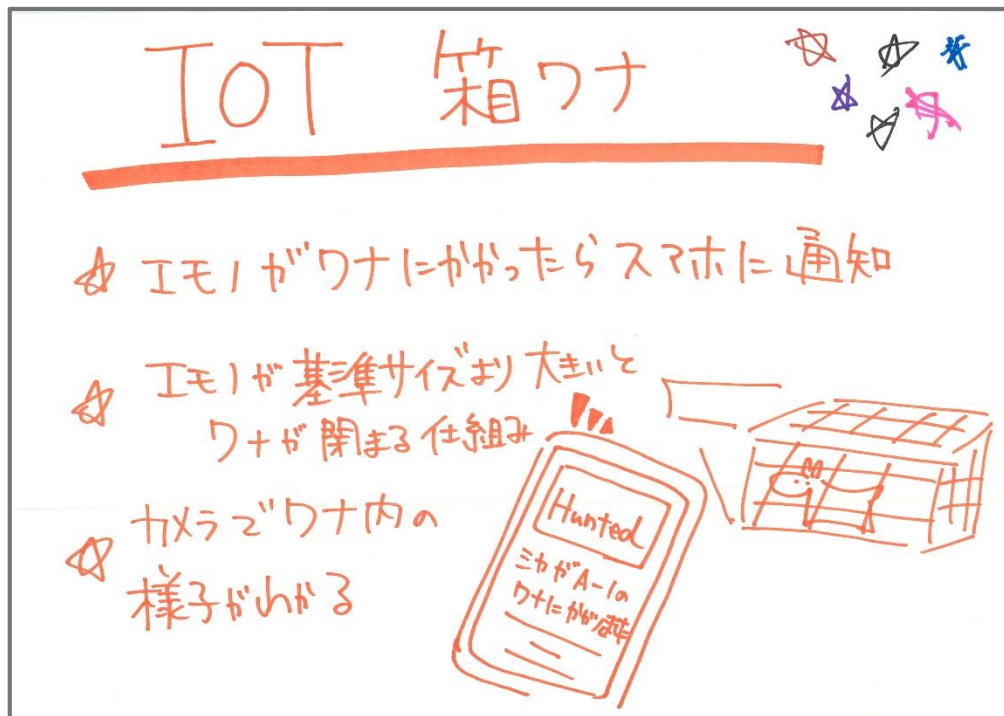 IOT 箱ワナ
エモノがワナにかかったらスマホに通知
エモノが基準サイズより大きいと
ワナが閉まる仕組み
カメラでワナ内の
様子がわかる
Hunted
A-1の
ワナにかかりました